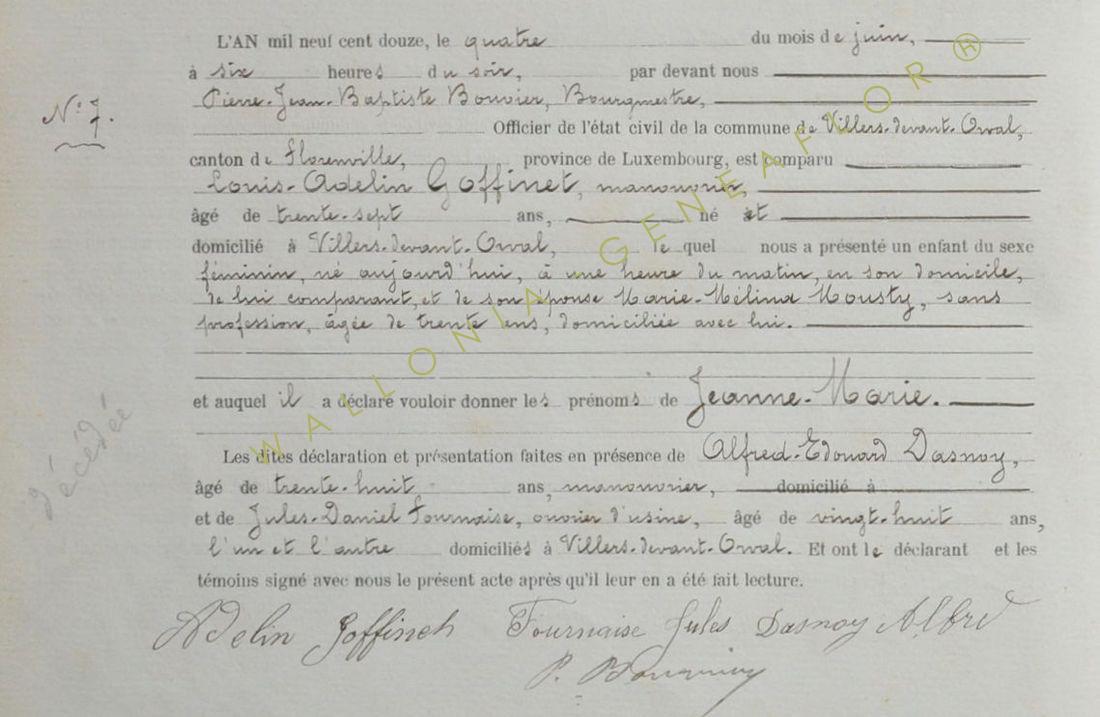 L'AN mil neuf cent douze, le quatre du mois de juin,
à six heures du soir, par devant nous
Pierre-Jean-Baptiste Bouvier, Bourgmestre,
N° 7.
Officier de l'état civil de la commune de Villers-devant-Orval,
canton de Florenville, province de Luxembourg, est comparu
Louis-Adelin Goffinet, manouvrier,
âgé de trente-sept ans, né et
domicilié à Villers-devant-Orval, le quel nous a présenté un enfant du sexe
féminin, né aujourd'hui, à une heure du matin, en son domicile,
de lui comparant, et de son épouse Marie-Mélina Mousty, sans
profession, âgée de trente ans, domiciliée avec lui.
et auquel il a déclaré vouloir donner les prénoms de Jeanne-Marie.
décédée
Les dites déclaration et présentation faites en présence de Alfred-Edouard Dasnoy,
âgé de trente-huit ans, manouvrier, domicilié à
et de Jules-Daniel Fournaise, ouvrier d'usine, âgé de vingt-huit ans,
l'un et l'autre domiciliés à Villers-devant-Orval. Et ont le déclarant et les
témoins signé avec nous le présent acte après qu'il leur en a été fait lecture.
Adelin Goffinet Fournaise Jules Dasnoy Alfred
P.
WALLONIA GENEAFOR ®